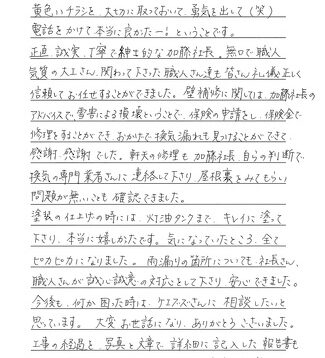 黄色いチラシを、大切に取っておいて、勇気を出して(笑)
電話をかけて本当に良かったー!ということです。
正直、誠実、丁寧で紳士的な加藤社長。無口で職人
気質の大工さん、関わって下さた職人さん達も皆さん礼儀正しく
信頼してお任せすることができました。壁補修に関しては、加藤社長の
アドバイスで、雪害による損壊ということで、保険の申請をし、保険金で
修理をすることができ、おかげで換気漏れも見つけることができて、
感謝、感謝でした。軒天の修理も加藤社長、自らの判断で、
換気の専門業者さんに連絡して下さり、屋根裏をみてもらい
問題が無いことも確認できました。
塗装の仕上げの時には、灯油タンクまで、キレイに塗って
下さり、本当に嬉しかたです。気になっていたところ、全て
ピカピカになりました。雨漏りの箇所についても、社長さん、
職人さんが誠心誠意の対応として下さり、安心できました。
今後も、何か困った時は、ケエズスさんに相談したいと
思っています。大変お世話になり、ありがとうございました。
工事の経過を、写真と文章で、詳細に記入した報告書も